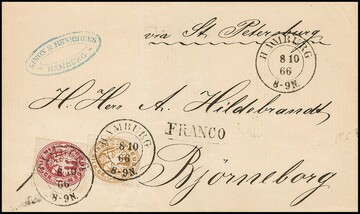 via St. Petersburg
SIMON H HINRICHSEN
HAMBURG
HAMBURG
8 10
66
8-9N.
H. Her A. Hildebrandt
FRANCO
HAMBURG
8·10
66
8-9N.
8 10
66
8-9N.
Björneborg